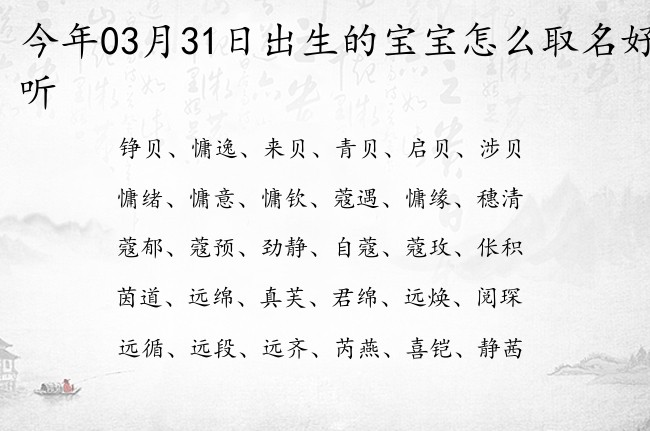 今年03月31日出生的宝宝怎么取名好
听
铮贝、慵逸、来贝、青贝、启贝、涉贝
慵绪、慵意、慵钦、蔻遇、慵缘、穗清
蔻郁、蔻预、劲静、自蔻、蔻玫、伥积
茵道、远绵、真芙、君绵、远焕、阅琛
远循、远段、远齐、芮燕、喜铠、静茜